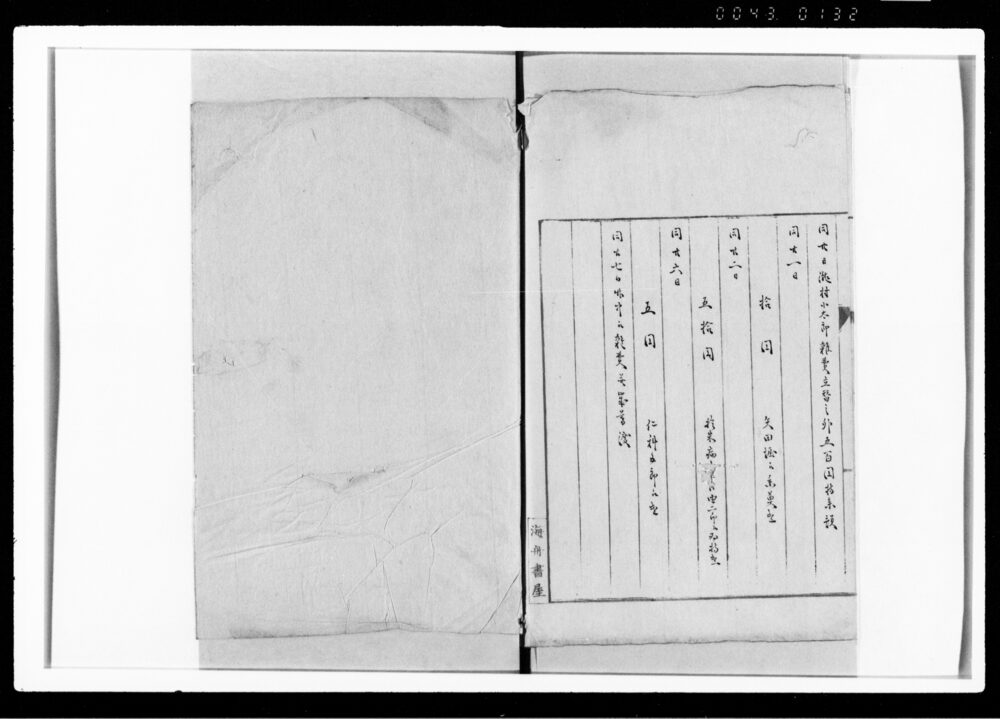 0043 0132
同廿日瀧村小太郎雑費立替之外五百円持参預
同廿一日
拾円 矢田堀之香奠遣
同廿二日
五拾円
同廿六日
五円 仁科五郎へ遣
同廿七日 雑費
海舟書屋